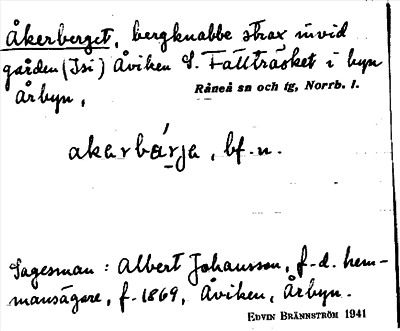 Åkerberget, bergknabbe strax invid
gården (Isi) Åviken S. Fällträsket i byn
Årbyn,
Råneå sn och tg, Norrb. l.
akɑrbǽrja, bf. n.
Sagesman: Albert Johansson, f-d. hem-
mansägare, f. 1869, Åviken, Årbyn.
EDVIN BRÄNNSTRÖM 1941